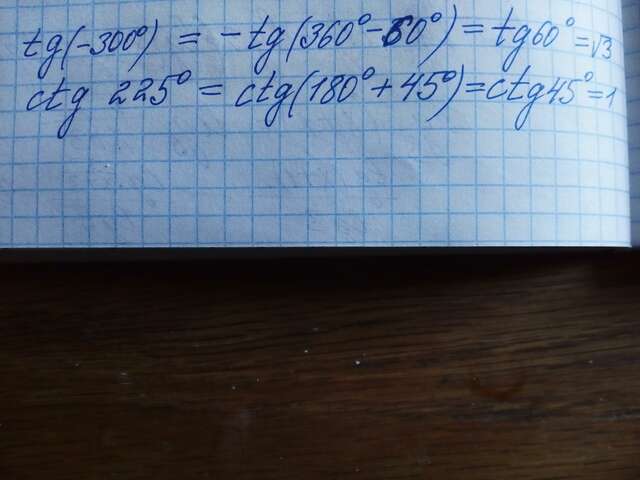 tg(-300°) = -tg(360°-60°) = tg60° = √3
ctg 225° = ctg(180° + 45°) = ctg45° = 1